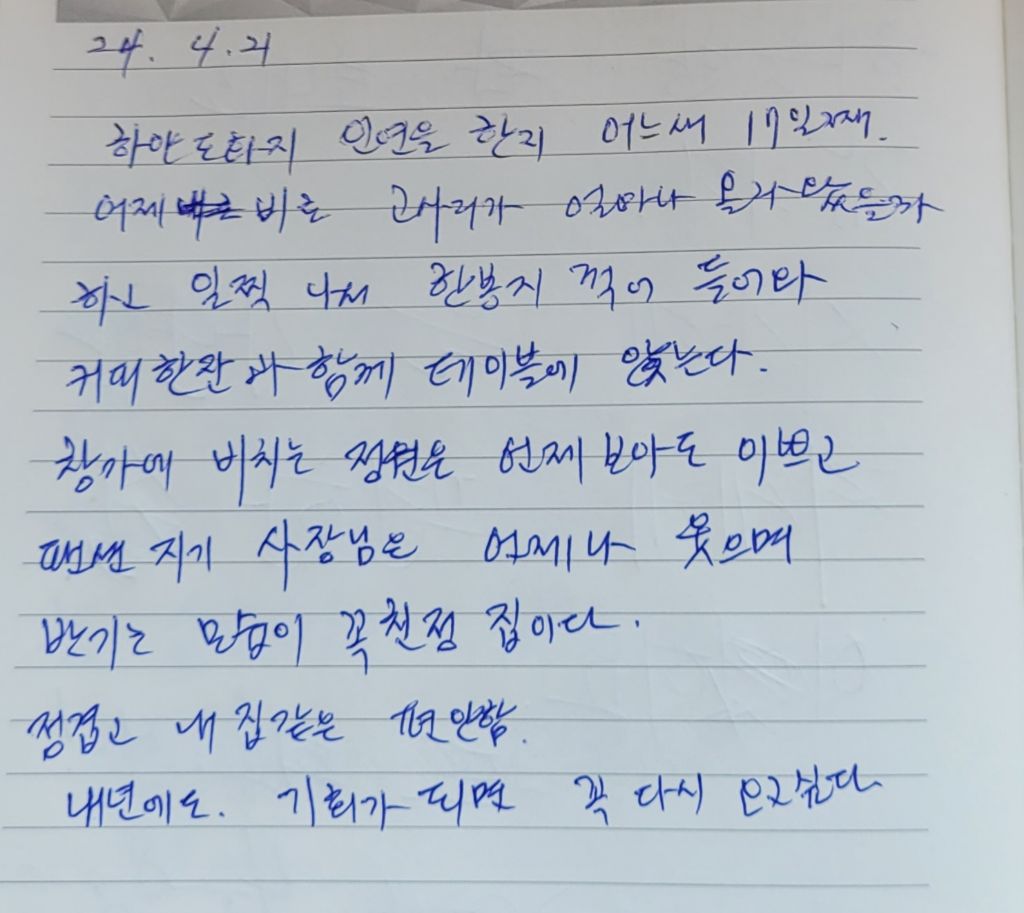 24. 4. 21
하얀도타지 인연을 한지 어느새 17일째.
어제 비로 고사리가 얼마나 올라 왔을까
하고 일찍 나서 한봉지 꺽어 들어와
커피한잔과 함께 테이블에 앉는다.
창가에 비치는 정원은 언제보아도 이쁘고
팬션지기 사장님은 언제나 웃으며
반기는 모습이 꼭 친정 집이다.
정겹고 내 집같은 편안함.
내년에도. 기회가 되면 꼭 다시 오고싶다